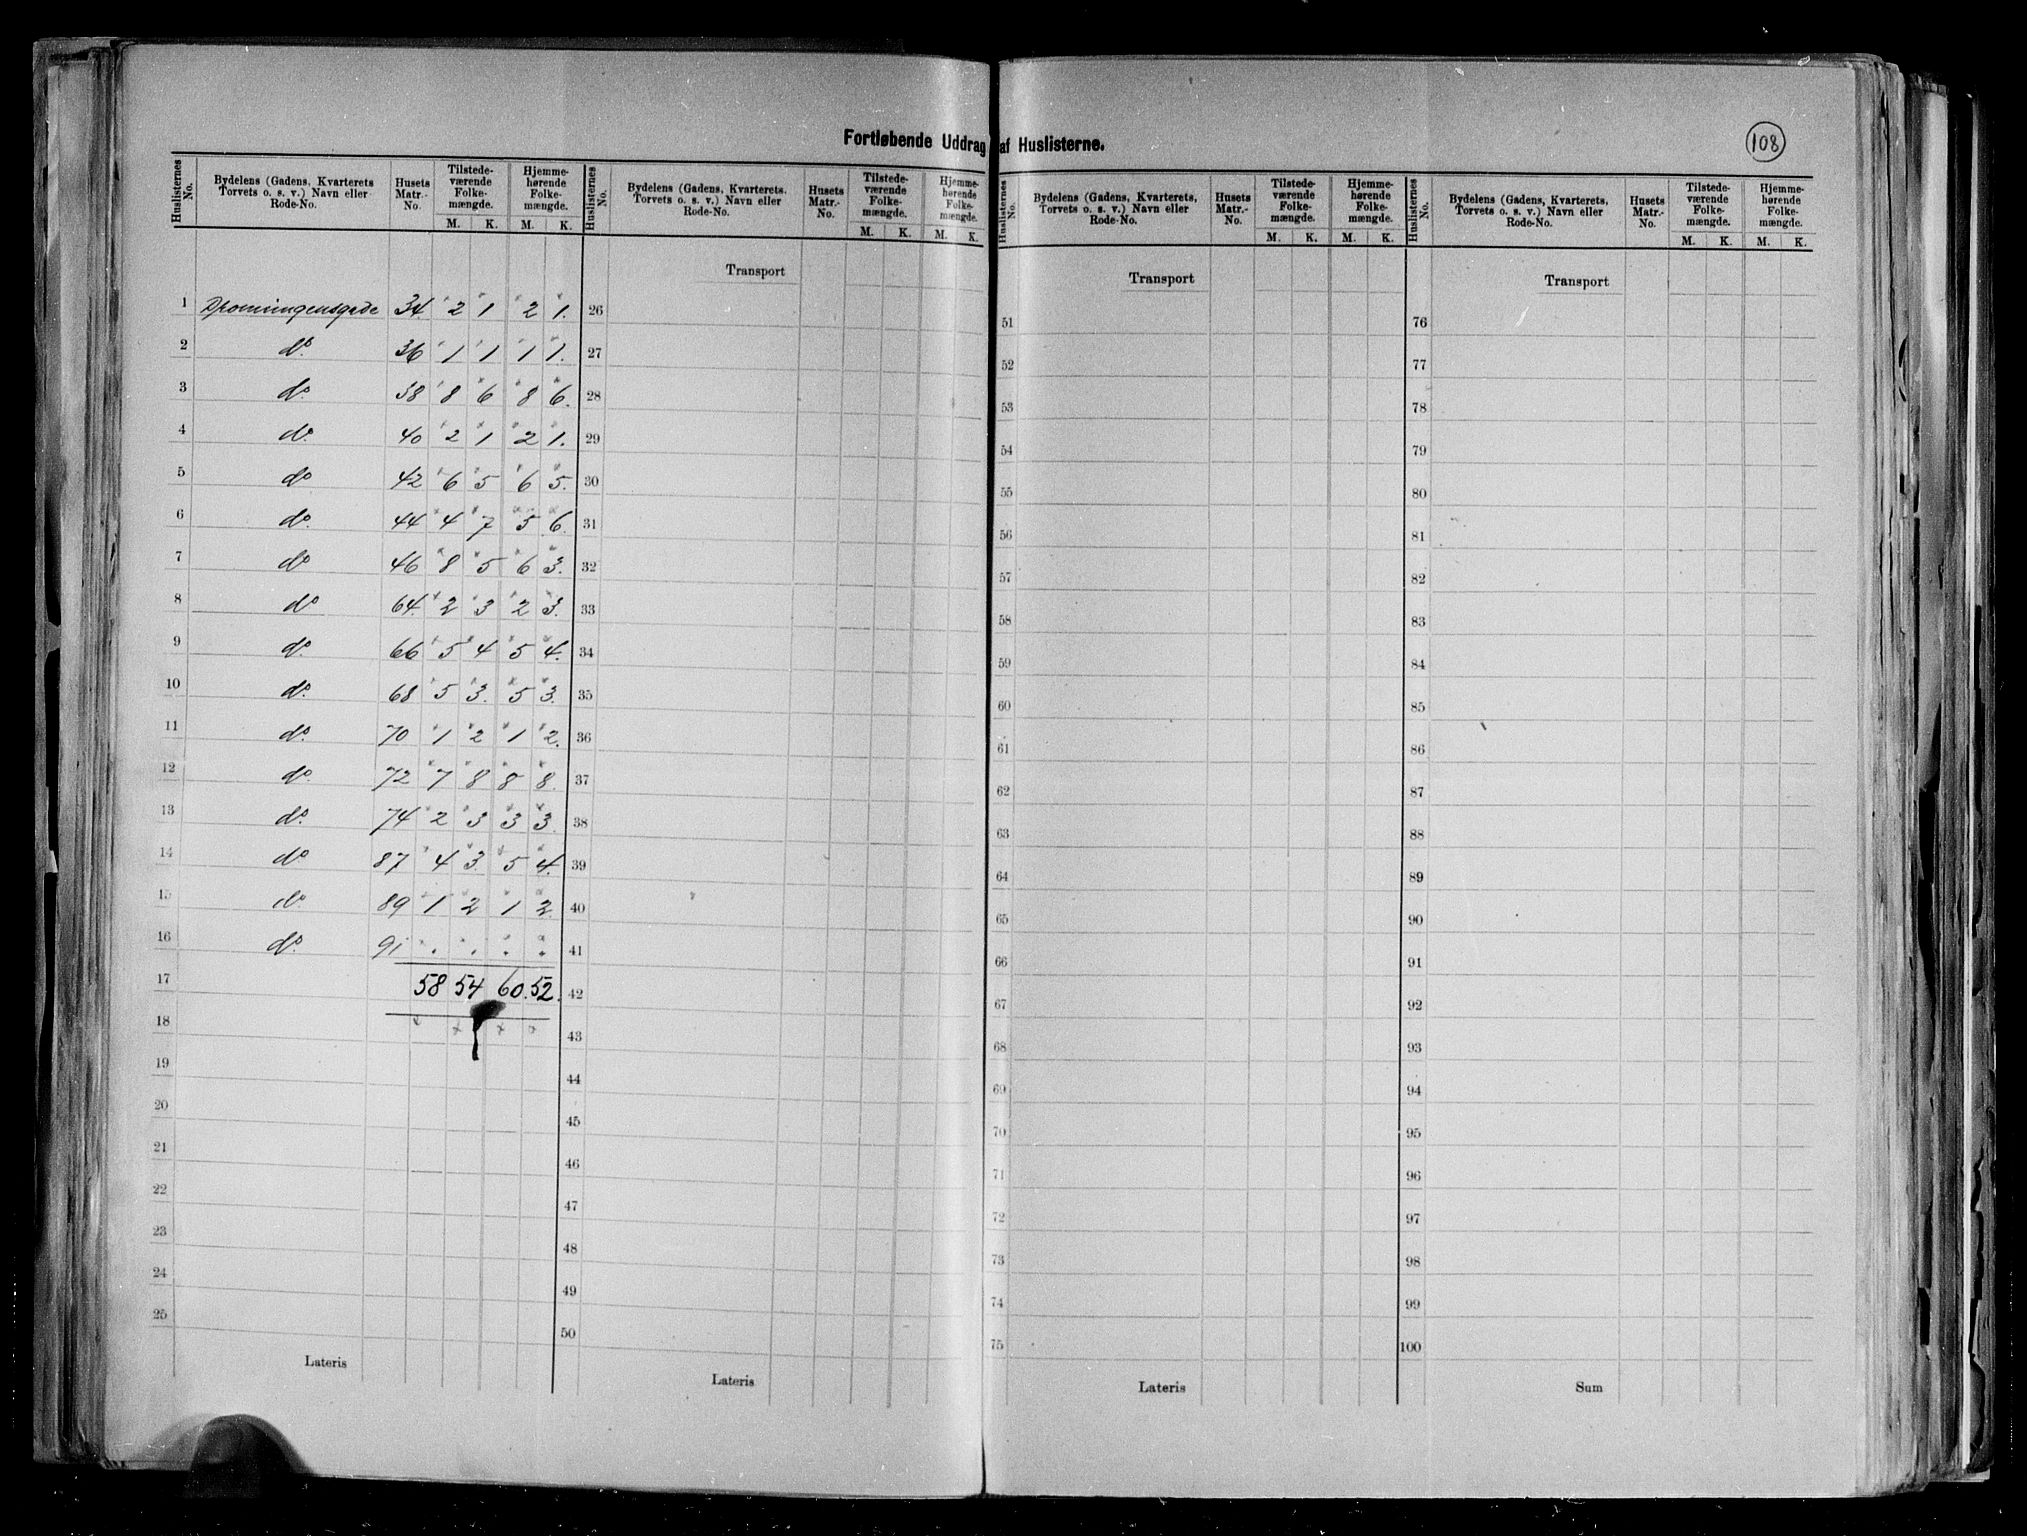 108
Fortløbende Uddrag af Huslisterne.
Huslisternes No. | Bydelens (Gadens, Kvarterets Torvets o. s. v.) Navn eller Rode-No. | Husets Matr.-No. | Tilstedeværende Folkemængde. M. K. | Hjemmehørende Folkemængde. M. K.
1 Dronningensgade 34. 2 1 2 1.
2 do. 36 1 1 1 1.
3 do. 38 8 6 8 6.
4 do. 40 2 1 2 1.
5 do 42 6 5 6 5.
6 do. 44 4 7 5 6.
7 do 46 8 5 6 3.
8 do 64. 2 3 2 3.
9 do. 66 5 4 5 4.
10 do. 68 5 3. 5 3.
11 do. 70 1 2 1 2.
12 do. 72 7 8 8 8.
13 do. 74 2 3 3 3.
14 do 87 4 3. 5 4.
15 do 89 1 2 1 2
16 do. 91 . . . .
17 58 54 60. 52.
18
19
20
21
22
23
24
25
Lateris
Huslisternes No. | Bydelens (Gadens, Kvarterets. Torvets o. s. v.) Navn eller Rode-No. | Husets Matr.-No. | Tilstedeværende Folkemængde. M. K. | Hjemmehørende Folkemængde. M. K.
Transport
26
27
28
29
30
31
32
33
34
35
36
37
38
39
40
41
42
43
44
45
46
47
48
49
50
Lateris
Huslisternes No. | Bydelens (Gadens, Kvarterets, Torvets o. s. v.) Navn eller Rode-No. | Husets Matr.-No. | Tilstedeværende Folkemængde. M. K. | Hjemmehørende Folkemængde. M. K.
Transport
51
52
53
54
55
56
57
58
59
60
61
62
63
64
65
66
67
68
69
70
71
72
73
74
75
Lateris
Huslisternes No. | Bydelens (Gadens, Kvarterets, Torvets o. s. v.) Navn eller Rode-No. | Husets Matr.-No. | Tilstedeværende Folkemængde. M. K. | Hjemmehørende Folkemængde. M. K.
Transport
76
77
78
79
80
81
82
83
84
85
86
87
88
89
90
91
92
93
94
95
96
97
98
99
100
Sum